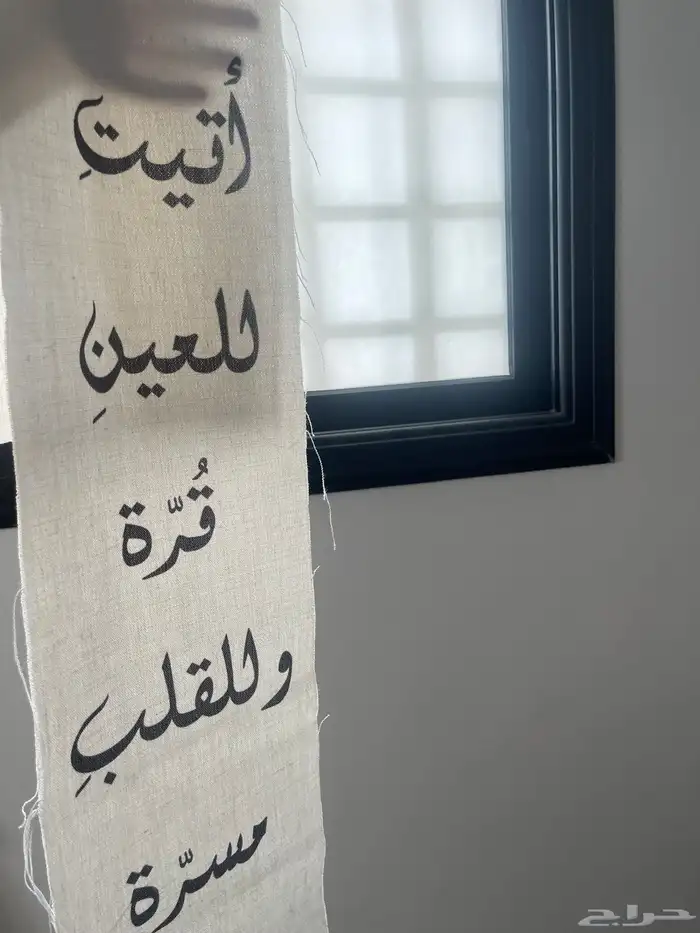 أتيتِ
للعينِ
قُرّة
وللقلبِ
مسرّة
حراج